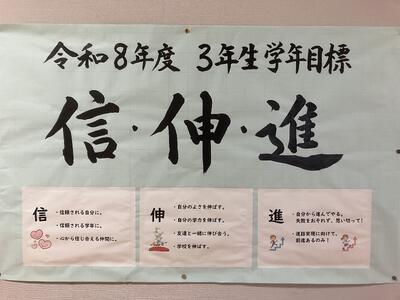 令和8年度 3年生学年目標
信・伸・進
信
・信頼される自分に。
・信頼される学年に。
・心から信じ合える仲間に。
伸
・自分のよさを伸ばす。
・自分の学力を伸ばす。
・友達と一緒に伸び合う。
・学校を伸ばす。
進
・自分から進んでやる。
失敗をおそれず、思い切って!
・進路実現に向けて。
前進あるのみ!